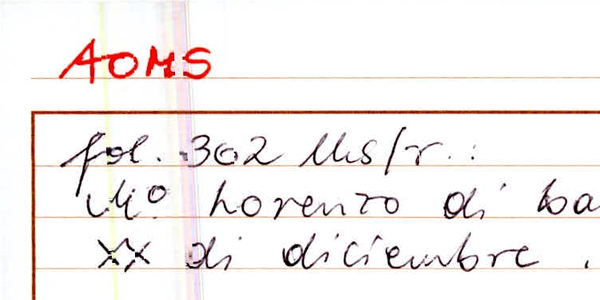 AOMS
fol. 302 Ms/r.:
Mº Lorenzo di ba
XX di diciembre.